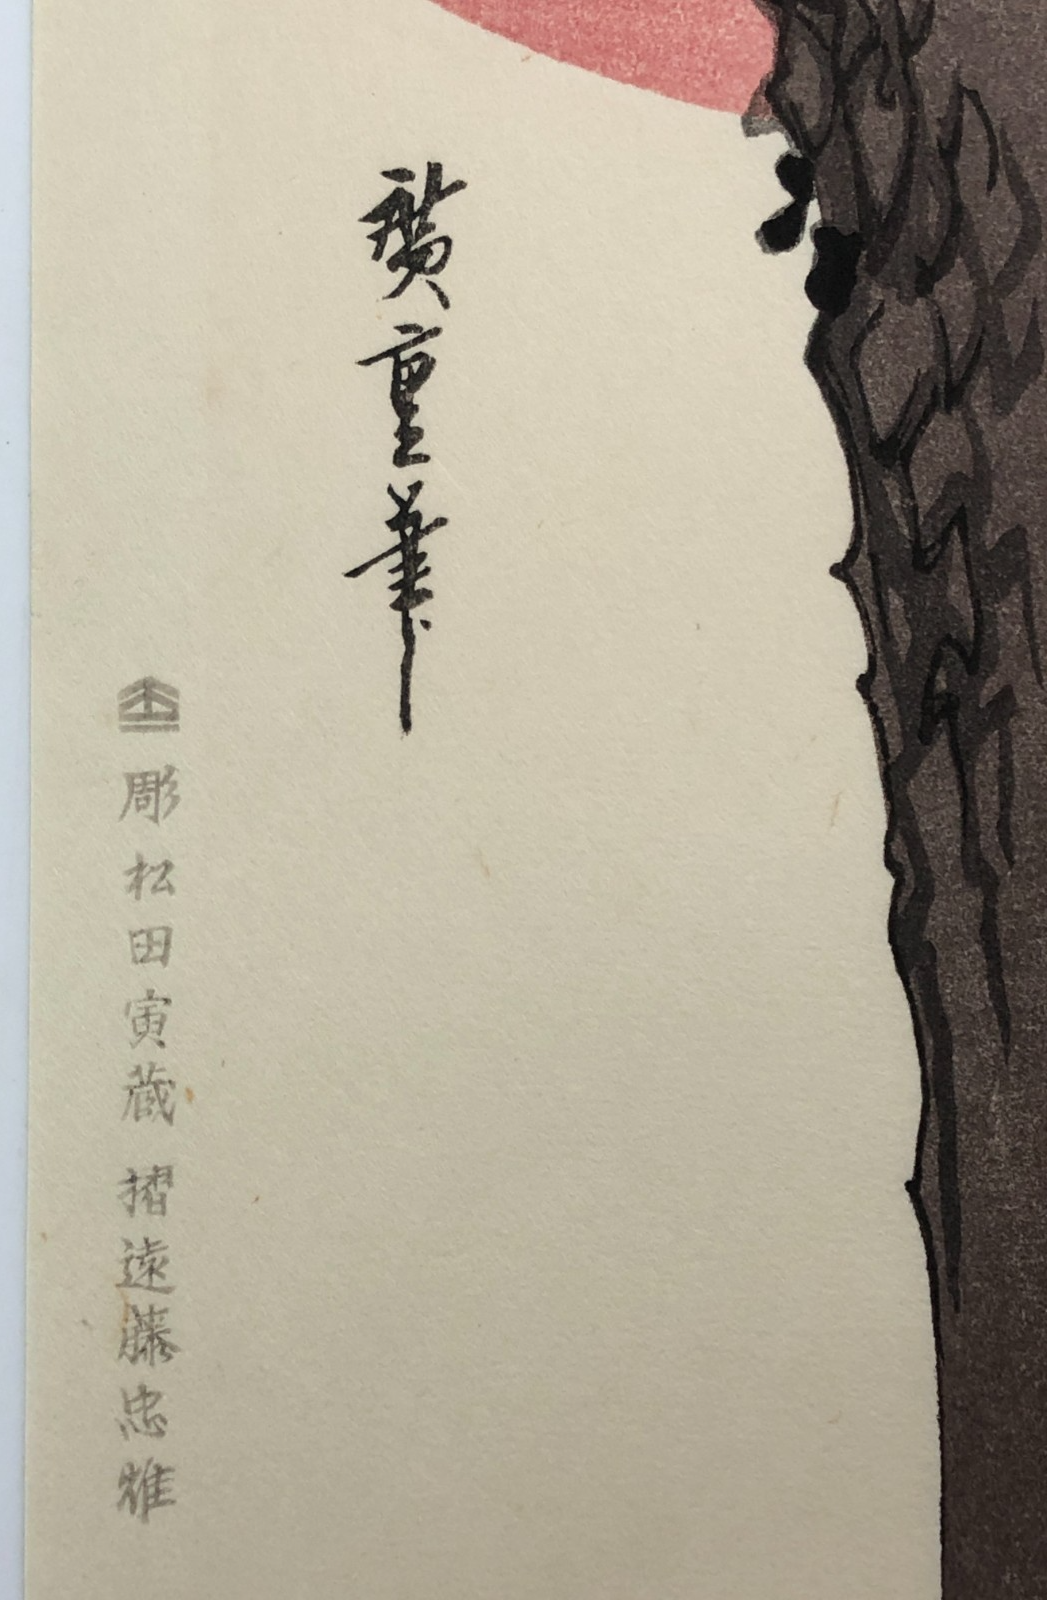 廣重筆
彫 松田寅蔵 摺 遠藤忠雄